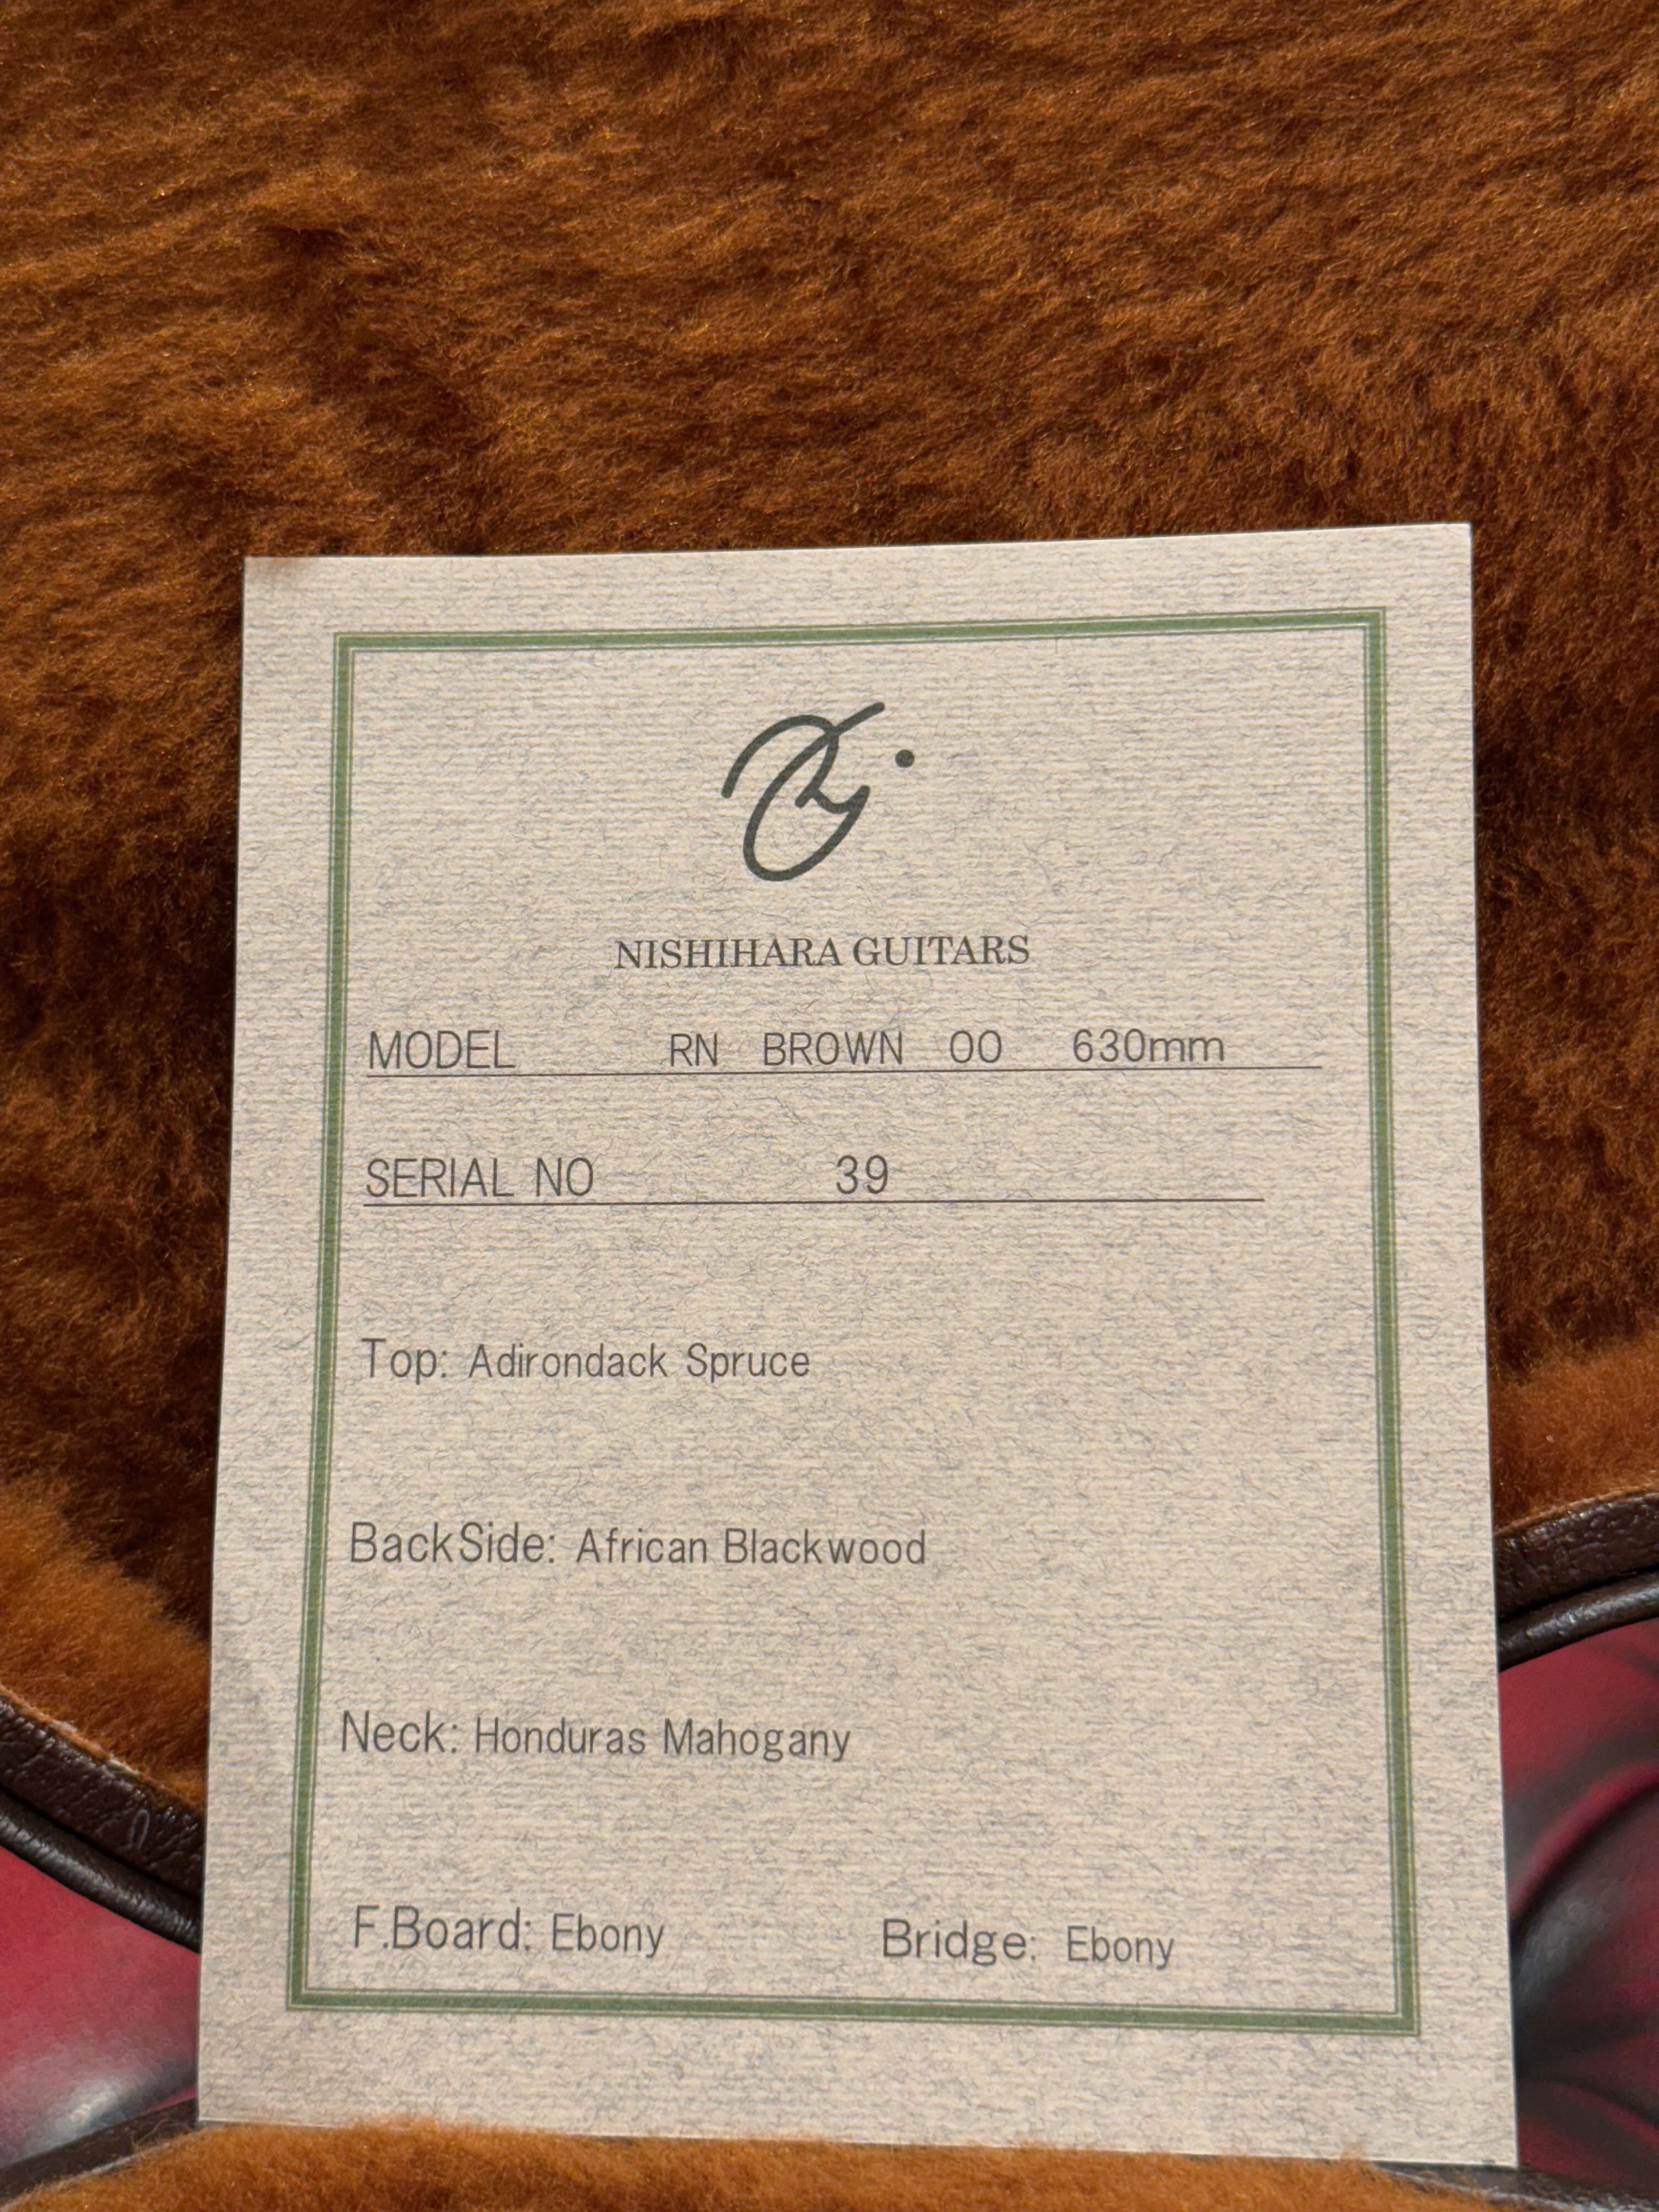 NISHIHARA GUITARS
MODEL RN BROWN OO 630mm
SERIAL NO 39
Top: Adirondack Spruce
BackSide: African Blackwood
Neck: Honduras Mahogany
F.Board: Ebony Bridge: Ebony